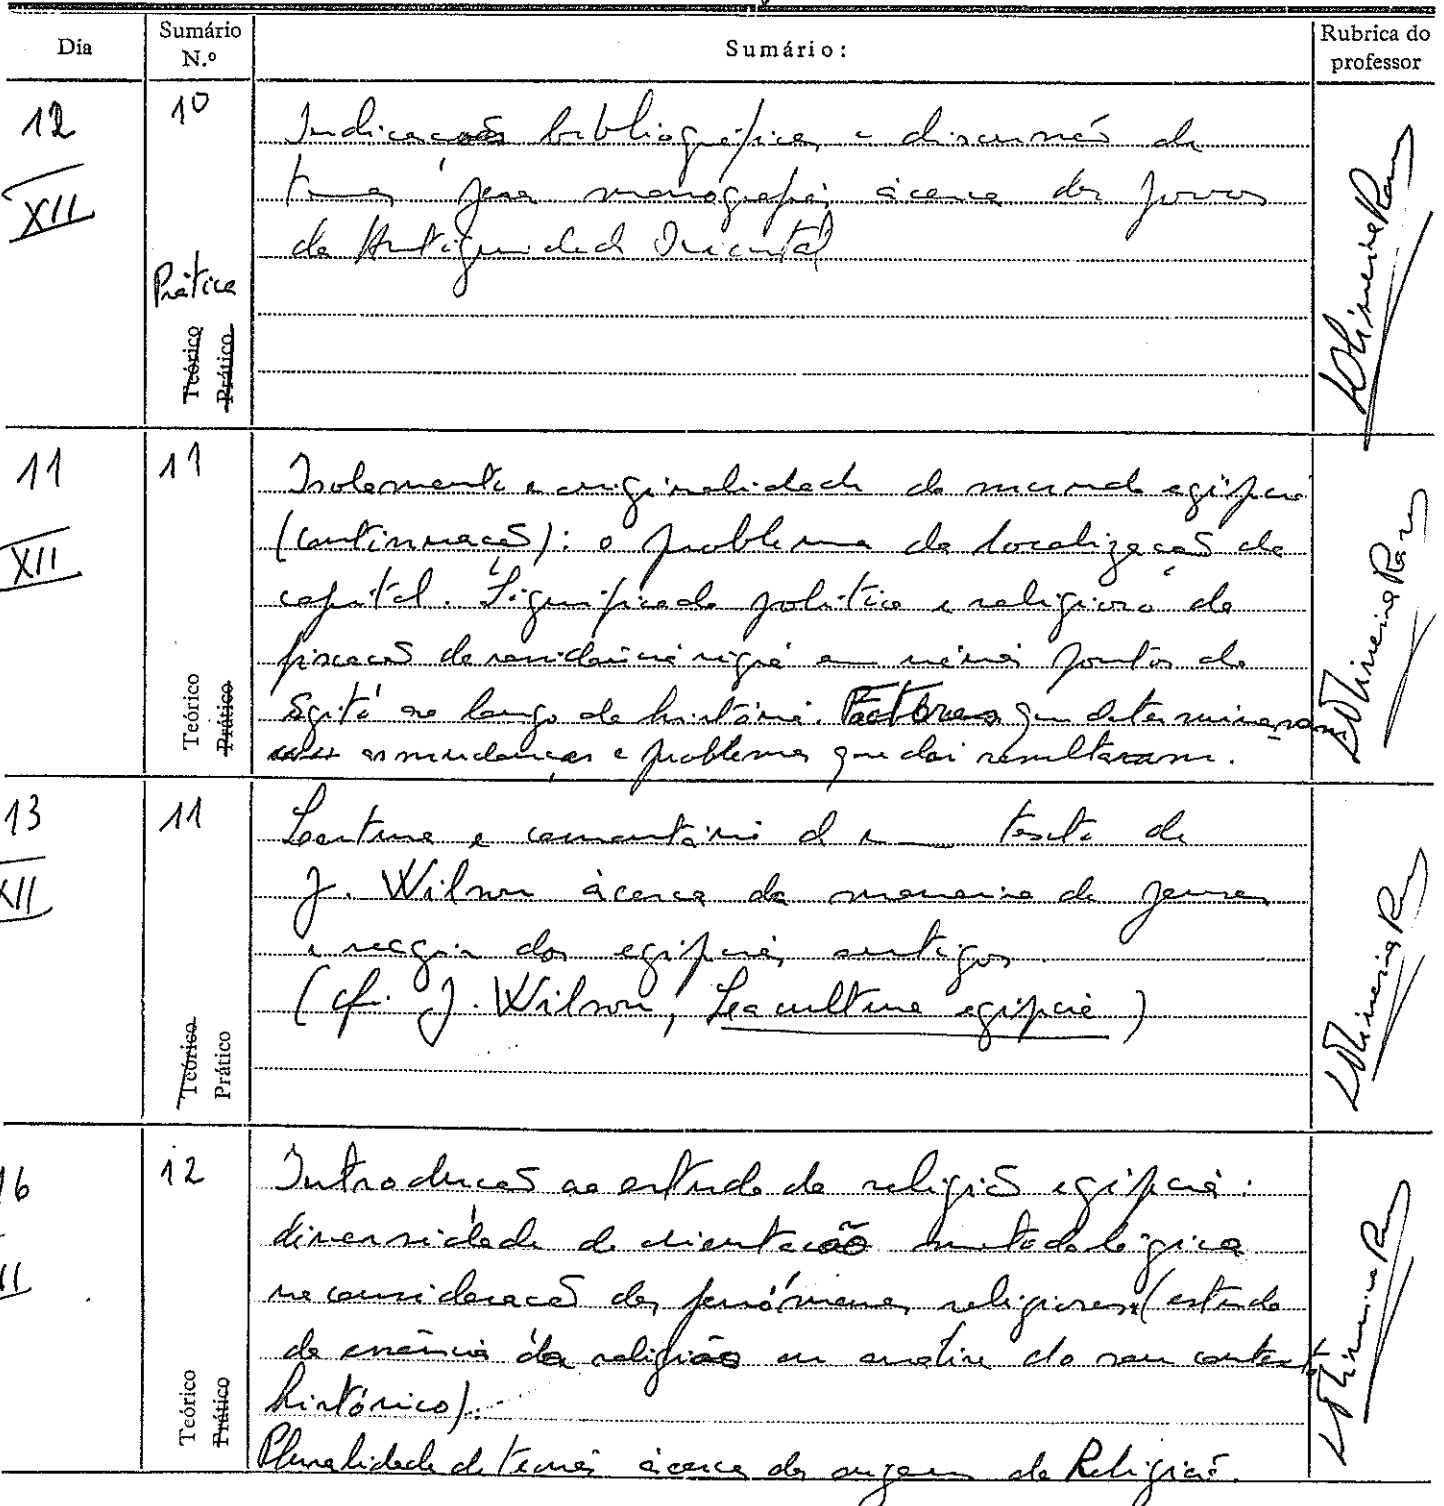 Dia
Sumário N.º
Sumário:
Rubrica do professor
12
XII
10
Prática
Teórico
Prático
Indicações bibliográficas e discussão de
temas para monografias àcerca dos povos
da Antiguidade Oriental
L Oliveira Ramos
11
XII
11
Teórico
Prático
Isolamento e originalidade do mundo egípcio
(continuação): o problema da localização da
capital. Significado político e religioso da
fixação da residência régia em vários pontos do
Egito ao longo da história. Factores que determinaram
as mudanças e problemas que daí resultaram.
L Oliveira Ramos
13
XII
11
Teórico
Prático
Leitura e comentário de um texto de
J. Wilson àcerca da maneira de pensar
e reagir dos egípcios antigos.
(cf. J. Wilson, La culture egipcia)
L Oliveira Ramos
16
XII
12
Teórico
Prático
Introdução ao estudo da religião egípcia:
diversidade de orientação metodológica
na consideração dos fenómenos religiosos (estudo
da essência da religião ou análise do seu contexto
histórico).
Pluralidade de teorias àcerca da origem da Religião.
L Oliveira Ramos